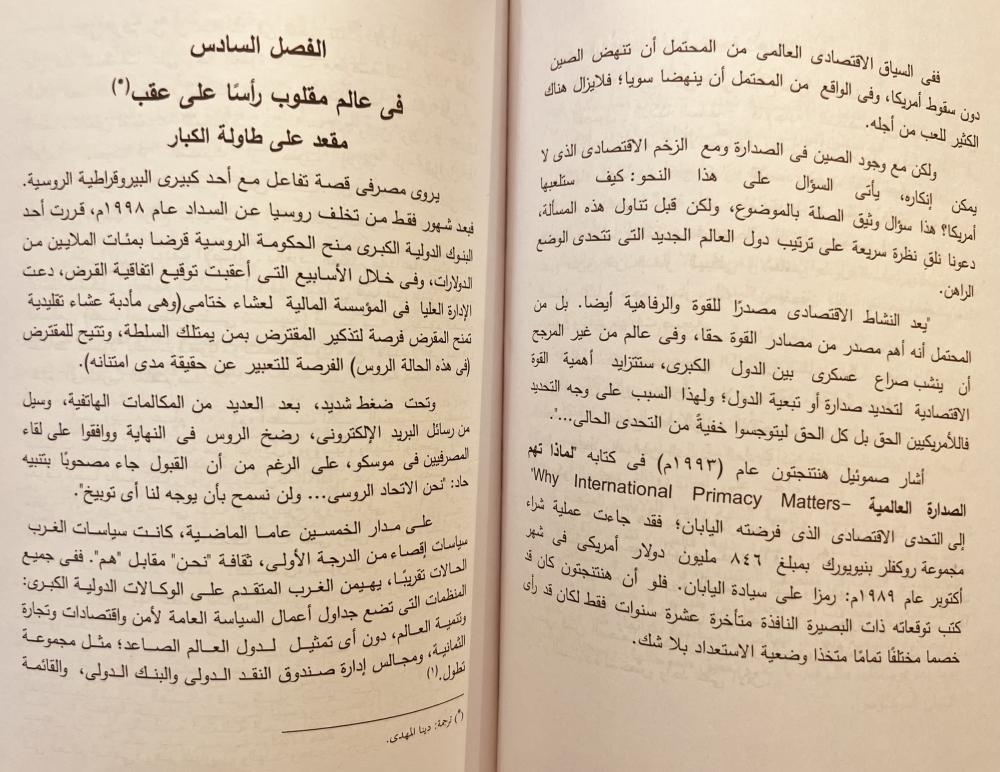 ففى السياق الاقتصادى العالمى من المحتمل أن تنهض الصين
دون سقوط أمريكا، وفى الواقع من المحتمل أن ينهضا سويا؛ فلايزال هناك
الكثير للعب من أجله.
ولكن مع وجود الصين فى الصدارة ومع الزخم الاقتصادى الذى لا
يمكن إنكاره، يأتى السؤال على هذا النحو: كيف ستلعبها
أمريكا؟ هذا سؤال وثيق الصلة بالموضوع، ولكن قبل تناول هذه المسألة،
دعونا نلقِ نظرة سريعة على ترتيب دول العالم الجديد التى تتحدى الوضع
الراهن.
"يعد النشاط الاقتصادى مصدرًا للقوة والرفاهية أيضا. بل من
المحتمل أنه أهم مصدر من مصادر القوة حقا، وفى عالم من غير المرجح
أن ينشب صراع عسكرى بين الدول الكبرى، ستتزايد أهمية القوة
الاقتصادية لتحديد صدارة أو تبعية الدول؛ ولهذا السبب على وجه التحديد
فاللأمريكيين الحق بل كل الحق ليتوجسوا خفيةً من التحدى الحالى...".
أشار صموئيل هنتنجتون عام (١٩٩٣م) فى كتابه "لماذا تهم
الصدارة العالمية –Why International Primacy Matters"
إلى التحدى الاقتصادى الذى فرضته اليابان؛ فقد جاءت عملية شراء
مجموعة روكفلر بنيويورك بمبلغ ٨٤٦ مليون دولار أمريكى فى شهر
أكتوبر عام ١٩٨٩م: رمزا على سيادة اليابان. فلو أن هنتنجتون كان قد
كتب توقعاته ذات البصيرة النافذة متأخرة عشرة سنوات فقط لكان قد رأى
خصما مختلفًا تمامًا متخذا وضعية الاستعداد بلا شك.
الفصل السادس
فى عالم مقلوب رأسًا على عقب(*)
مقعد على طاولة الكبار
يروى مصرفى قصة تفاعل مع أحد كبيرى البيروقراطية الروسية.
فبعد شهور فقط من تخلف روسيا عن السداد عام ١٩٩٨م، قررت أحد
البنوك الدولية الكبرى منح الحكومة الروسية قرضا بمئات الملايين من
الدولارات، وفى خلال الأسابيع التى أعقبت توقيع اتفاقية القرض، دعت
الإدارة العليا فى المؤسسة المالية لعشاء ختامى(وهى مأدبة عشاء تقليدية
تمنح المقرض فرصة لتذكير المقترض بمن يمتلك السلطة، وتتيح للمقترض
(فى هذه الحالة الروس) الفرصة للتعبير عن حقيقة مدى امتنانه).
وتحت ضغط شديد، بعد العديد من المكالمات الهاتفية، وسيل
من رسائل البريد الإلكترونى، رضخ الروس فى النهاية ووافقوا على لقاء
المصرفيين فى موسكو، على الرغم من أن القبول جاء مصحوبًا بتنبيه
حاد: "نحن الاتحاد الروسى... ولن نسمح بأن يوجه لنا أى توبيخ".
على مدار الخمسين عاما الماضية، كانت سياسات الغرب
سياسات إقصاء من الدرجة الأولى، ثقافة "نحن" مقابل "هم". ففى جميع
الحالات تقريبًا، يهيمن الغرب المتقدم على الوكالات الدولية الكبرى:
المنظمات التى تضع جداول أعمال السياسة العامة لأمن واقتصادات وتجارة
وتنمية العالم، دون أى تمثيل لدول العالم الصاعد؛ مثل مجموعة
الثمانية، ومجالس إدارة صندوق النقد الدولى والبنك الدولى، والقائمة
تطول.(١)
(*) ترجمة: دينا المهدى.